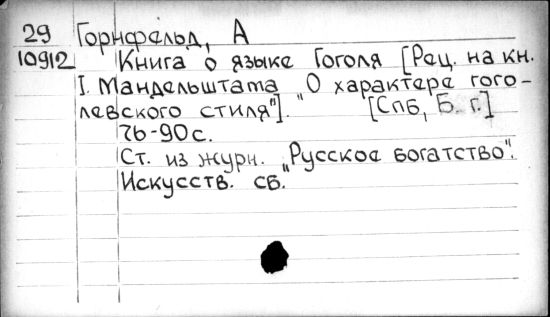 29 Горнфельд, А
10912 Книга о языке Гоголя [Рец. на кн.
I. Мандельштама "О характере гого-
левского стиля"]. [Спб, Б. г.]
76-90 с.
Ст. из журн. „Русское богатство".
Искусств. сб.